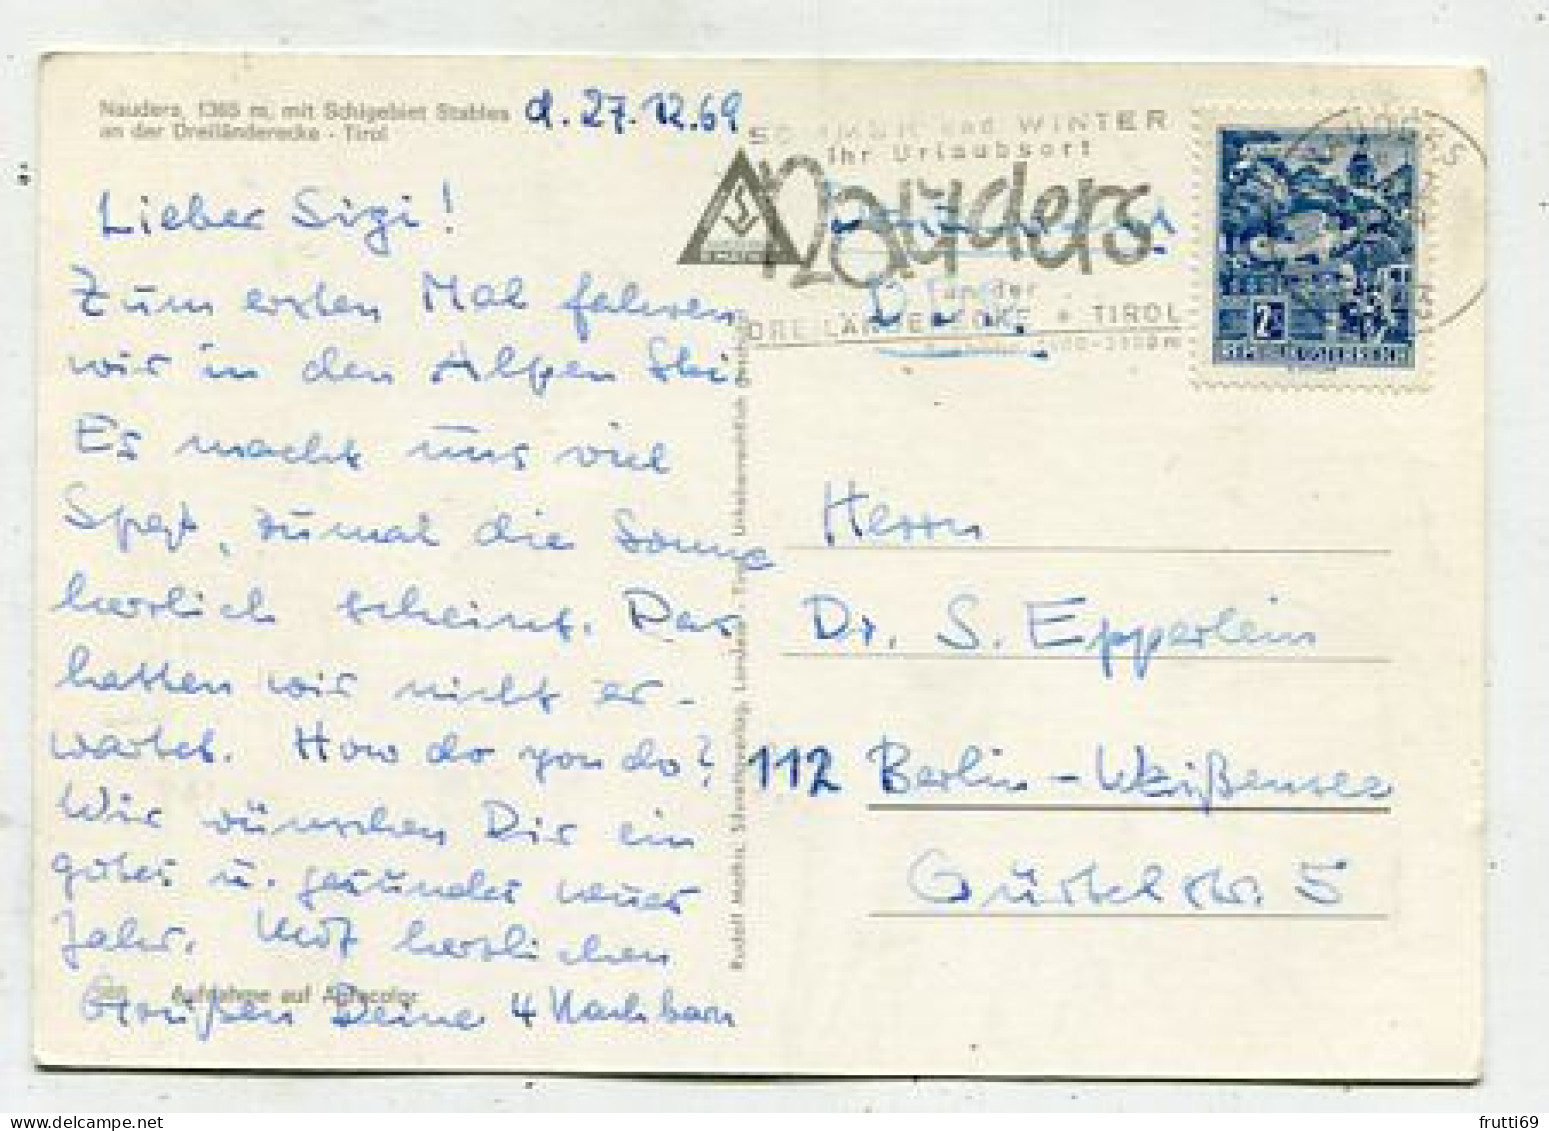 Nauders, 1365 m, mit Schigebiet Stables
an der Dreiländerecke - Tirol
d. 27.12.69
Lieber Sigi!
Zum ersten Mal fahren
wir in den Alpen Ski
Es macht uns viel
Spaß, zumal die Sonne
herrlich scheint. Das
hatten wir nicht er-
wartet. How do you do?
Wir wünschen Dir ein
gutes u. gesundes neues
Jahr. Mit herzlichen
Grüßen Deine 4 Nachbarn
Aufnahme auf Agfacolor
Rudolf Mathis, Silvrettaverlag, Landeck - Tirol Urheberrechtlich
SOMMER und WINTER
Ihr Urlaubsort
Nauders
an der
DREILÄNDERECKE • TIROL
2 S
REPUBLIK ÖSTERREICH
Herrn
Dr. S. Epperlein
112 Berlin-Weißensee
Gürtelstr. 5
frutti69